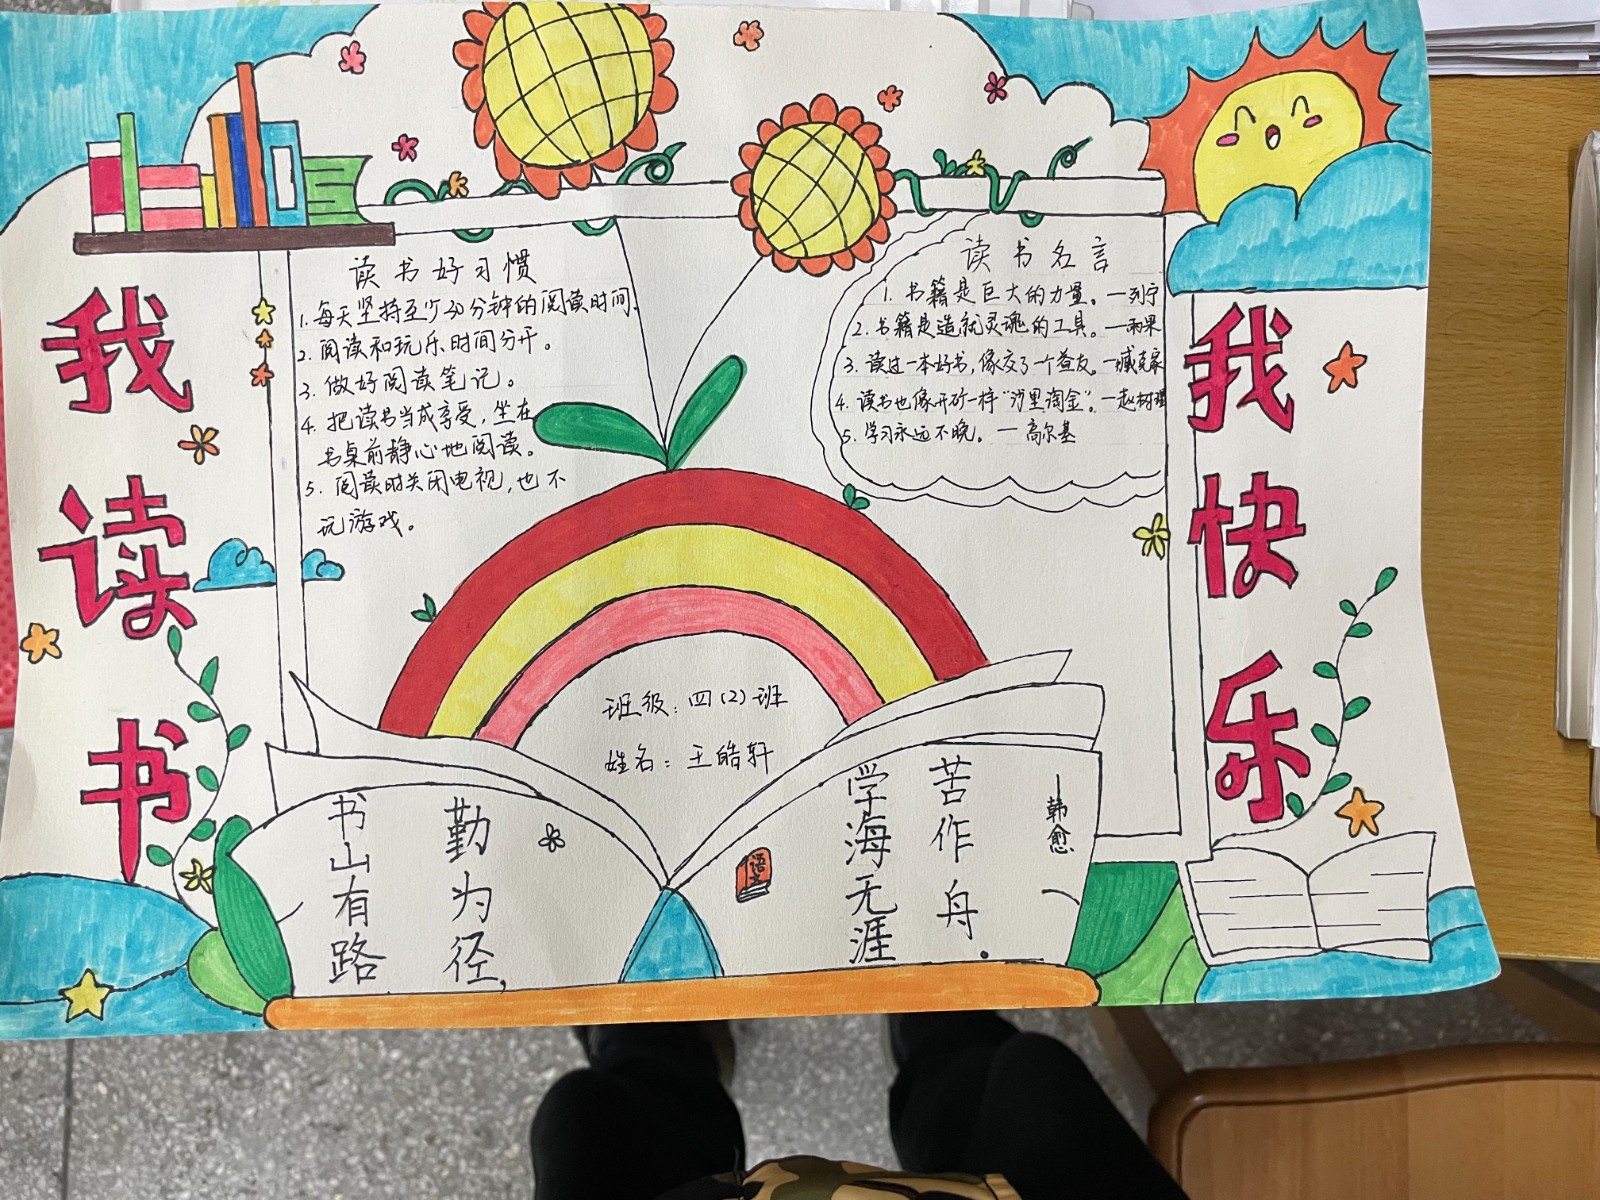 我读书
我快乐
读书好习惯
1. 每天坚持至少30分钟的阅读时间.
2. 阅读和玩乐时间分开。
3. 做好阅读笔记。
4. 把读书当成享受，坐在
书桌前静心地阅读。
5. 阅读时关闭电视，也不
玩游戏。
读书名言
1. 书籍是巨大的力量。—列宁
2. 书籍是造就灵魂的工具。—雨果
3. 读过一本好书，像交了一个益友。—臧克家
4. 读书也像开矿一样“沙里淘金”。—赵树理
5. 学习永远不晚。—高尔基
班级：四（2）班
姓名：王皓轩
书山有路
勤为径，
学海无涯
苦作舟。
—韩愈
语文